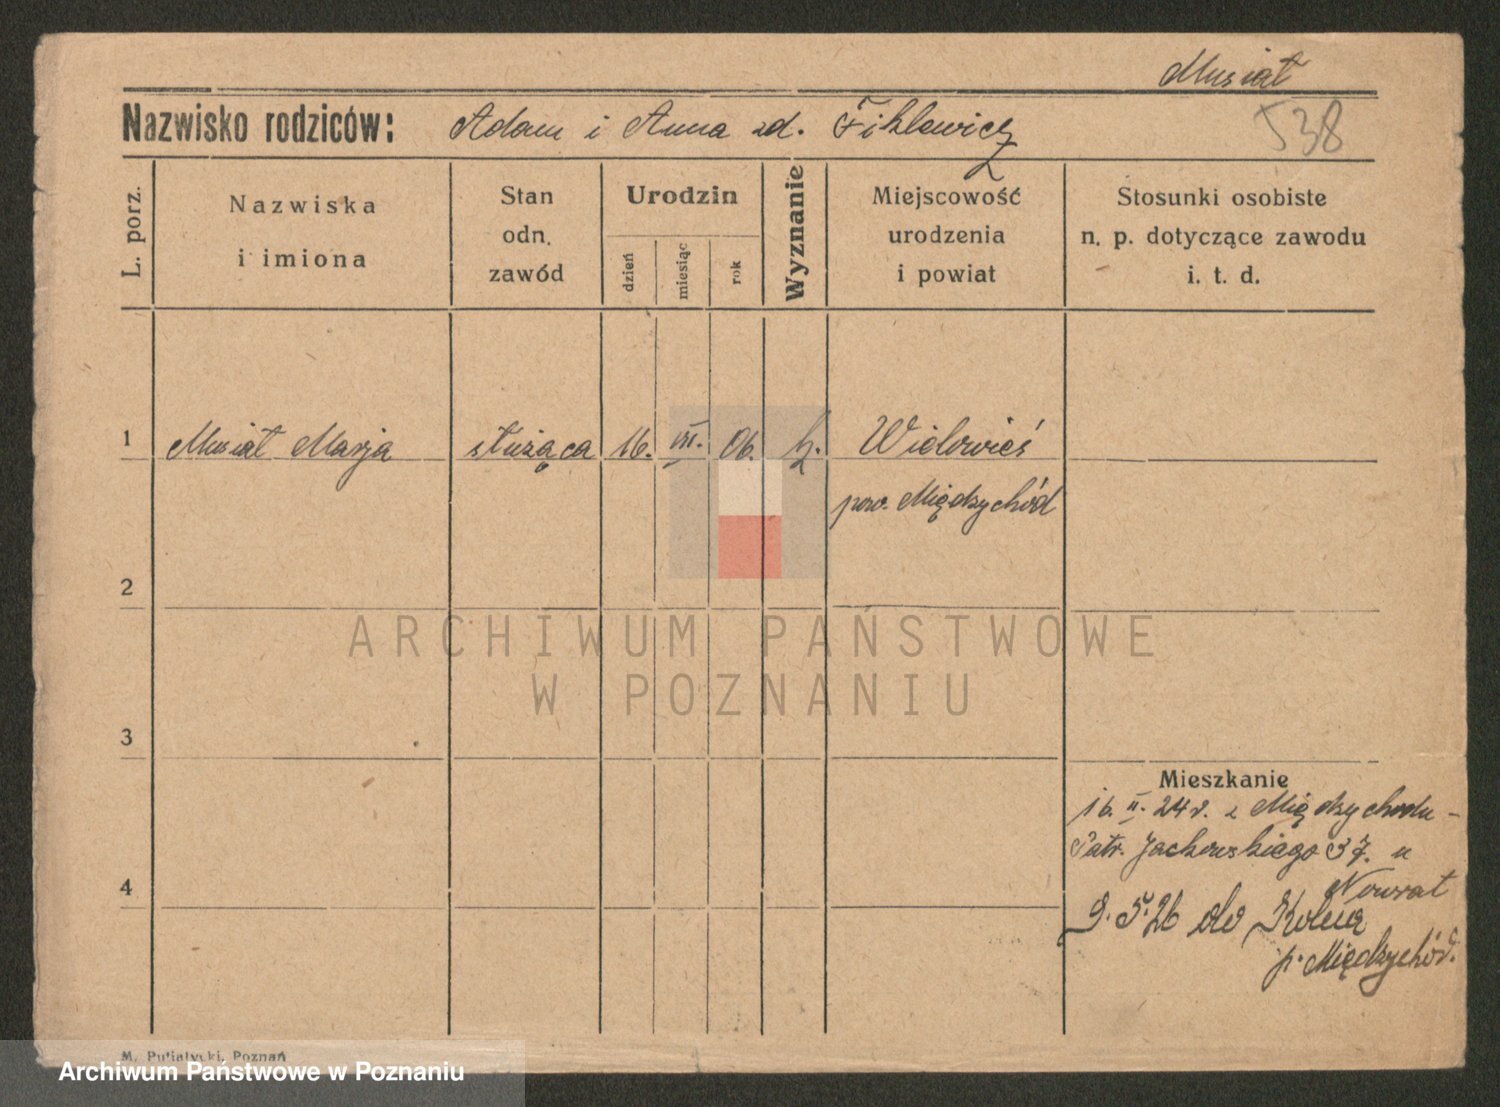 Musiał
Nazwisko rodziców: Adam i Anna zd. Fiklewicz
538
L. porz.
Nazwiska
i imiona
Stan
odn.
zawód
Urodzin
dzień
miesiąc
rok
Wyznanie
Miejscowość
urodzenia
i powiat
Stosunki osobiste
n. p. dotyczące zawodu
i. t. d.
1 Musiał Marja służąca 16. III. 06. k. Wielowieś
pow. Międzychód
2
ARCHIWUM PAŃSTWOWE
W POZNANIU
3
Mieszkanie
16. II. 24 r. z Międzychodu -
Patr. Jackowskiego 37. u
Nowrat
4
9. 5. 26 do Kolna
p. Międzychód.
M. Putiatycki, Poznań
Archiwum Państwowe w Poznaniu